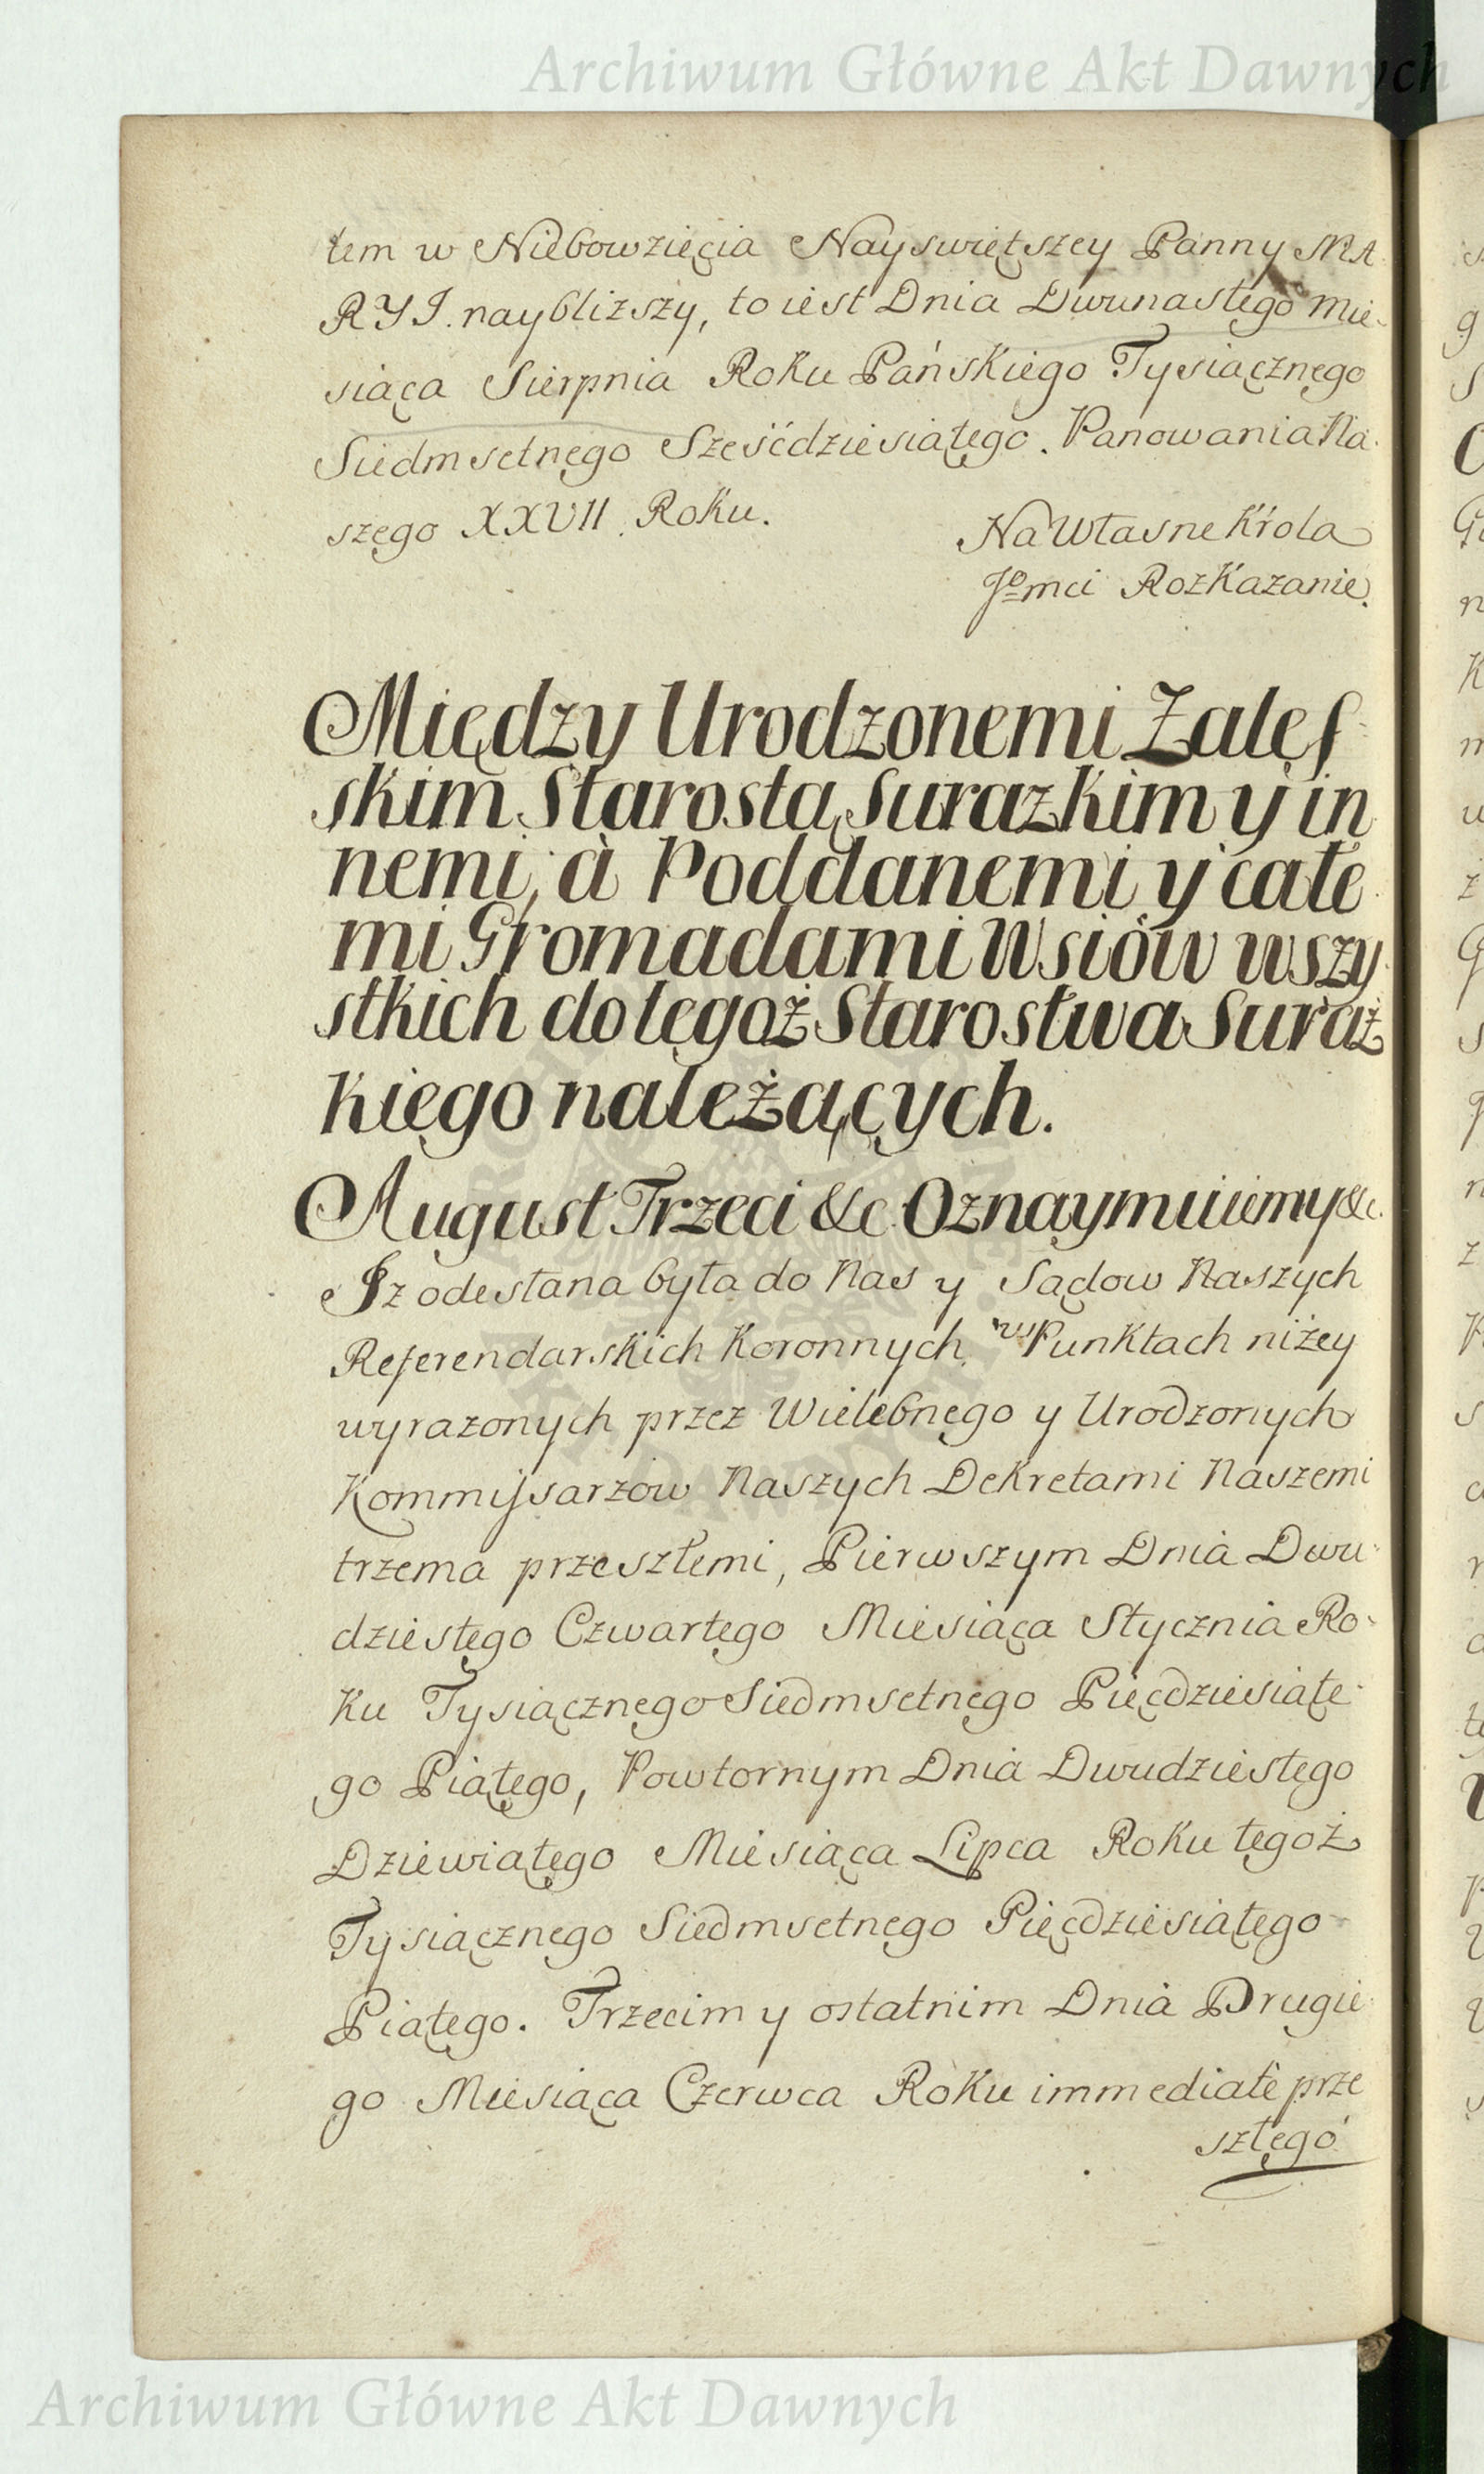 Archiwum Główne Akt Dawnych
tem w Niebowzięcia Nayswiętszey Panny MA
RYI. naybliższy, to iest Dnia Dwunastego Mie-
siąca Sierpnia Roku Pańskiego Tysiącznego
Siedmsetnego Sześćdziesiątego. Panowania Na-
szego XXVII. Roku.
Na Własne Króla
Jomci Rozkazanie.
Między Urodzonemi Zales-
skim Starostą Surazkim y in
nemi, à Poddanemi y całe
mi Gromadami Wsiów wszy-
stkich do tegoż Starostwa Suraż
kiego należących.
August Trzeci &c Oznaymuiemy &c.
Iz odesłana była do Nas y Sądow Naszych
Referendarskich Koronnych, w Punktach niżey
wyrazonych przez Wielebnego y Urodzonych
Kommissarzow Naszych Dekretami Naszemi
trzema przeszłemi, Pierwszym Dnia Dwu-
dziestego Czwartego Miesiąca Stycznia Ro-
ku Tysiącznego Siedmsetnego Pięcdziesiąte-
go Piątego, Powtornym Dnia Dwudziestego
Dziewiątego Miesiąca Lipca Roku tegoż
Tysiącznego Siedmsetnego Pięcdziesiątego
Piątego. Trzecim y ostatnim Dnia Drugie-
go Miesiąca Czerwca Roku immediatè prze
szłego
Archiwum Główne Akt Dawnych